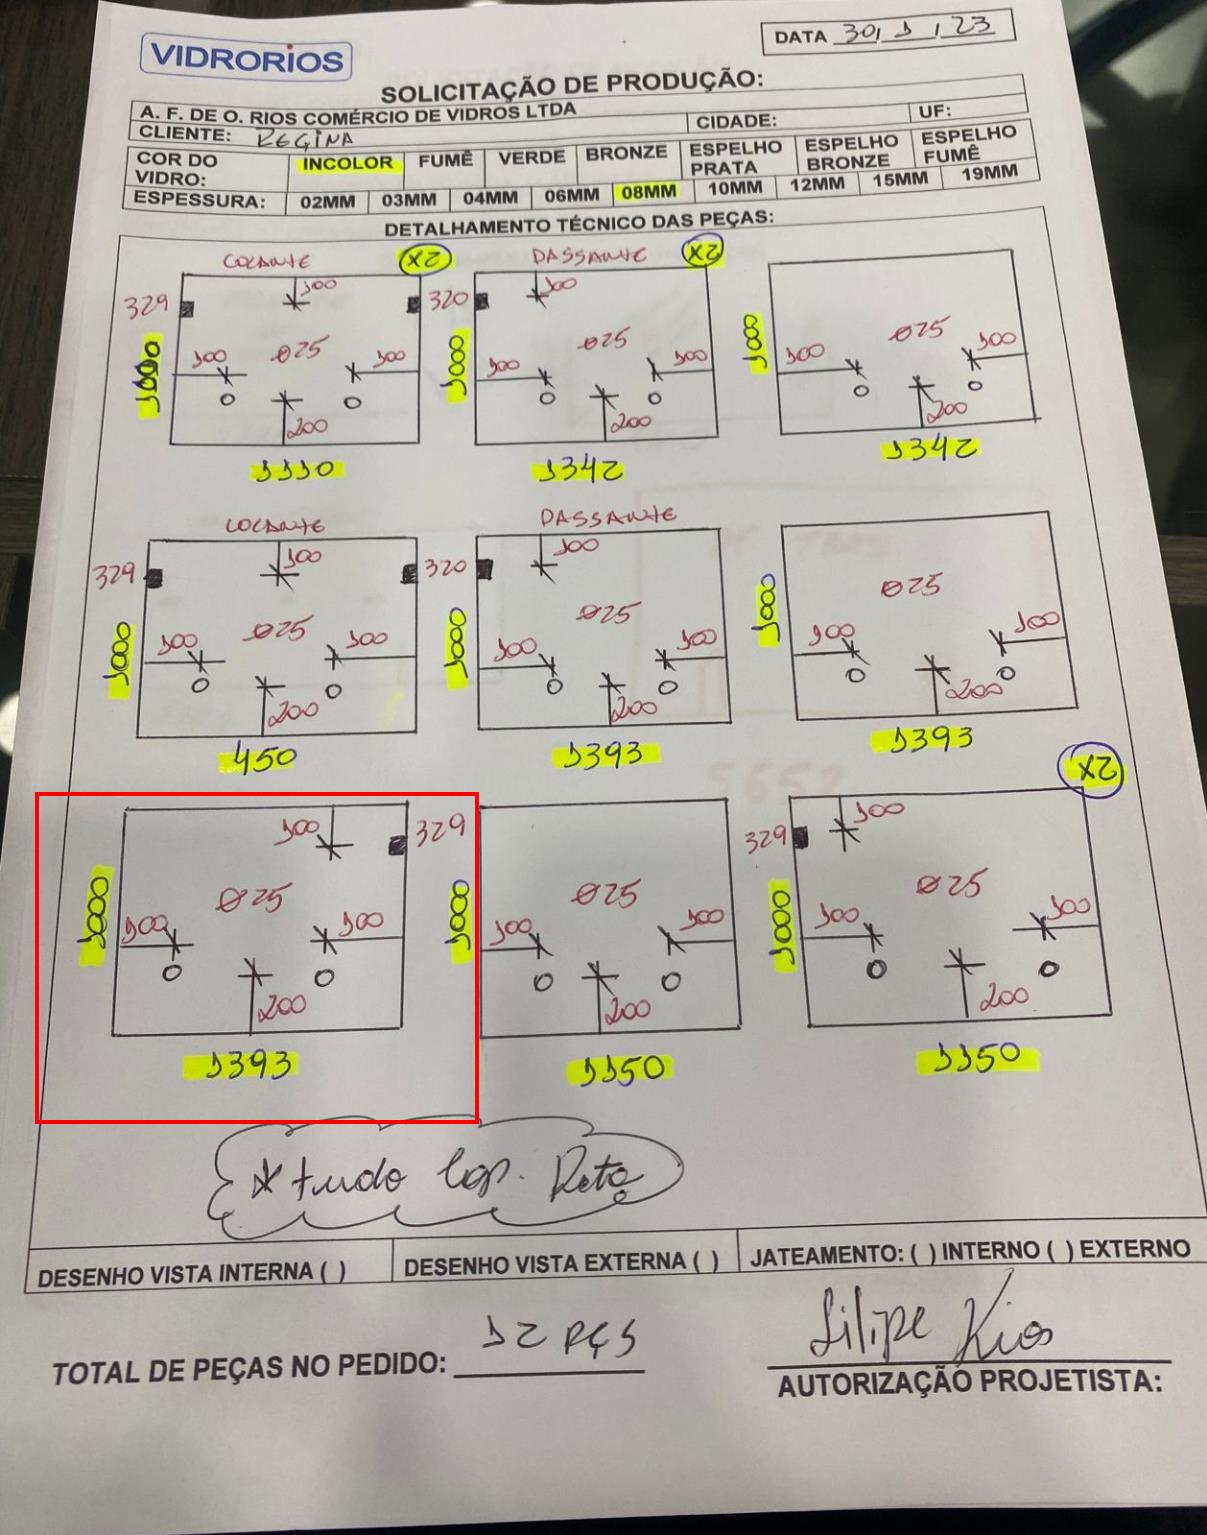 VIDRORIOS
DATA 30, 1, 23
SOLICITAÇÃO DE PRODUÇÃO:
A. F. DE O. RIOS COMÉRCIO DE VIDROS LTDA
CLIENTE: REGINA CIDADE: UF:
COR DO VIDRO: INCOLOR FUMÊ VERDE BRONZE ESPELHO PRATA ESPELHO BRONZE ESPELHO FUMÊ
ESPESSURA: 02MM 03MM 04MM 06MM 08MM 10MM 12MM 15MM 19MM
DETALHAMENTO TÉCNICO DAS PEÇAS:
COLANTE 2X PASSANTE 2X
329 100 320 100
1000 100 Ø25 100 1000 100 Ø25 100 1000 100 Ø25 100
200 200 200
1110 1342 1342
COLANTE PASSANTE
329 100 320 100
1000 100 Ø25 100 1000 100 Ø25 100 1000 100 Ø25 100
200 200 200
450 1393 1393
2X
100 329 329 100
1000 100 Ø25 100 1000 100 Ø25 100 1000 100 Ø25 100
200 200 200
1393 1150 1150
* tudo Lap. Reta
DESENHO VISTA INTERNA ( ) DESENHO VISTA EXTERNA ( ) JATEAMENTO: ( ) INTERNO ( ) EXTERNO
TOTAL DE PEÇAS NO PEDIDO: 12 PÇS
Filipe Rios
AUTORIZAÇÃO PROJETISTA: